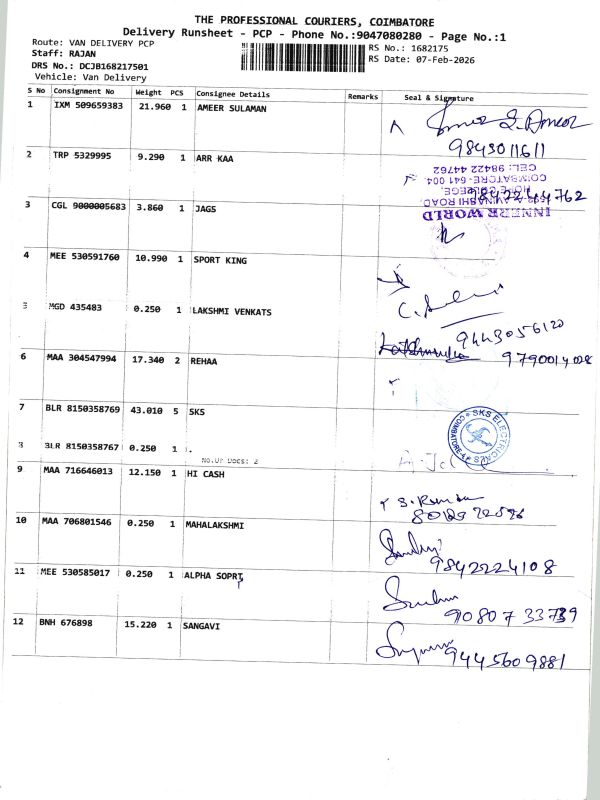 THE PROFESSIONAL COURIERS, COIMBATORE
Delivery Runsheet - PCP - Phone No.:9047080280 - Page No.:1
Route: VAN DELIVERY PCP
Staff: RAJAN
DRS No.: DCJB168217501
Vehicle: Van Delivery
RS No.: 1682175
RS Date: 07-Feb-2026
S No Consignment No Weight PCS Consignee Details Remarks Seal & Signature
1 IXM 509659383 21.960 1 AMEER SULAMAN
9843011611
2 TRP 5329995 9.290 1 ARR KAA
9842244762
INNERE WORLD
AVINASHI ROAD,
HOPE COLLEGE,
COIMBATORE- 641 004
CEL: 98422 44762
3 CGL 9000005683 3.860 1 JAGS
4 MEE 530591760 10.990 1 SPORT KING
9443056120
5 MGD 435483 0.250 1 LAKSHMI VENKATS
9790014028
6 MAA 304547994 17.340 2 REHAA
7 BLR 8150358769 43.010 5 SKS
SKS ELECTRICALS
COIMBATORE-4
8 BLR 8150358767 0.250 1 .
No.Of Docs: 2
9 MAA 716646013 12.150 1 HI CASH
10 MAA 706801546 0.250 1 MAHALAKSHMI
9842224108
11 MEE 530585017 0.250 1 ALPHA SOPRT
90807 33739
12 BNH 676898 15.220 1 SANGAVI
9445609881